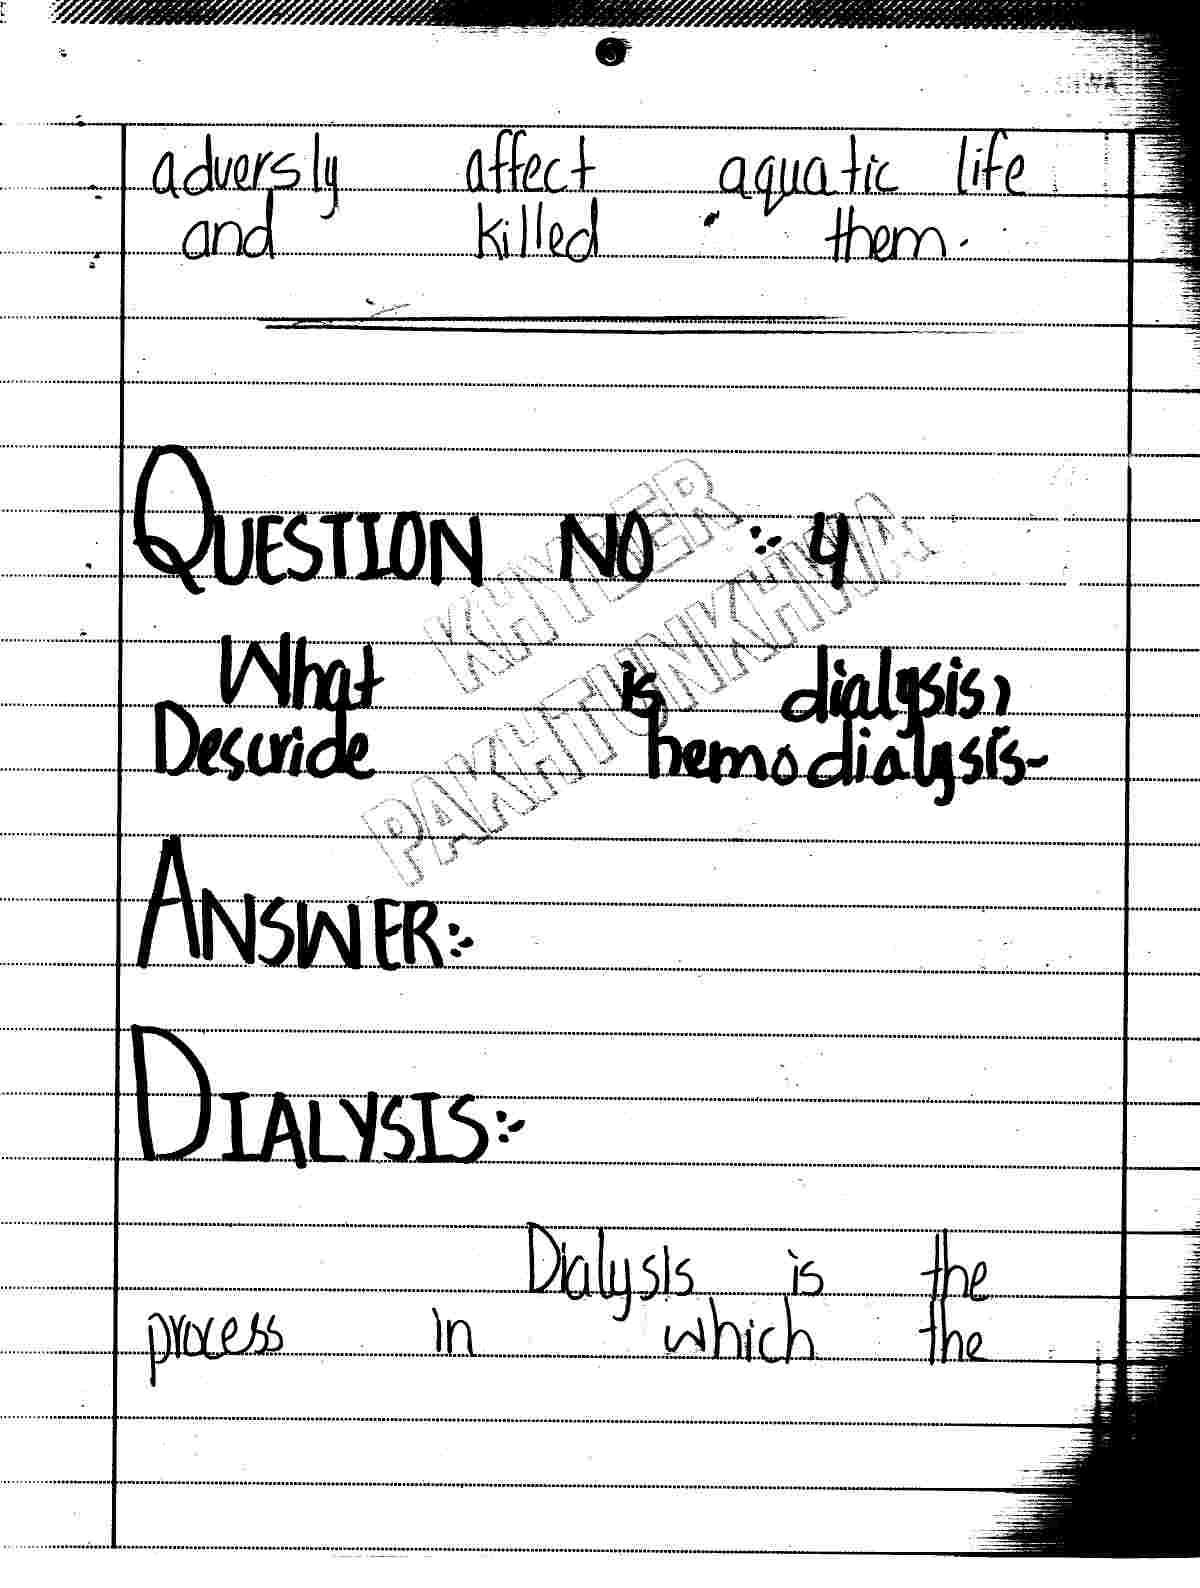 adversly affect aquatic life
and killed them.
QUESTION NO :- 4
What is dialysis,
Descride hemodialysis-
ANSWER:-
DIALYSIS:-
Dialysis is the
process in which the
KHYBER
PAKHTUNKHWA